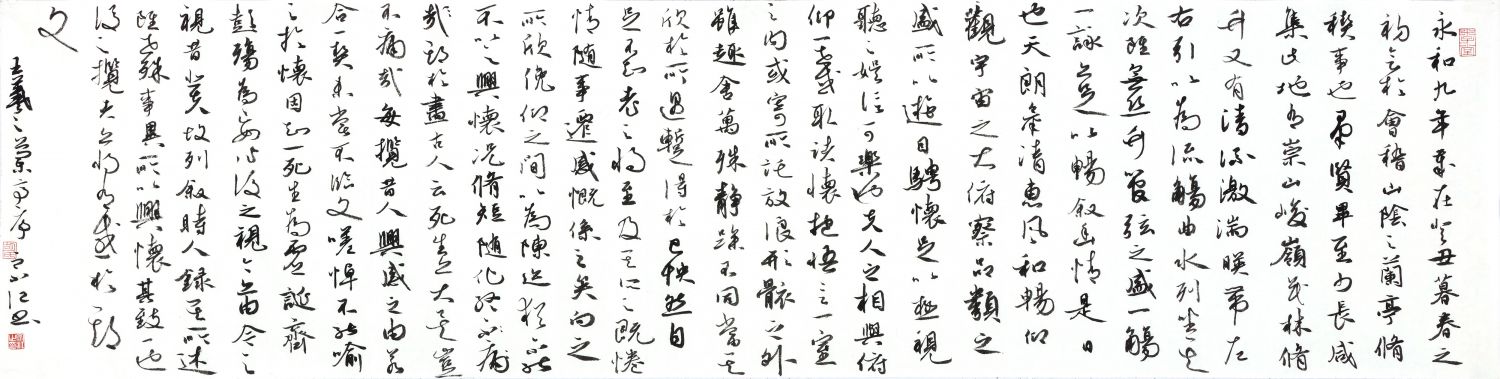 永和九年歲在癸丑暮春之
初會於會稽山陰之蘭亭脩
禊事也羣賢畢至少長咸
集此地有崇山峻嶺茂林脩
竹又有清流激湍暎帶左
右引以為流觴曲水列坐其
次雖無絲竹管弦之盛一觴
一詠亦足以暢敘幽情是日
也天朗氣清惠風和暢仰
觀宇宙之大俯察品類之
盛所以遊目騁懷足以極視
聽之娛信可樂也夫人之相與俯
仰一世或取諸懷抱悟言一室
之內或寄所託放浪形骸之外
雖趣舍萬殊静躁不同當其
欣於所遇暫得於己怏然自
足不知老之將至及其所之既惓
情隨事遷感慨係之矣向之
所欣俛仰之間以為陳迹猶不能
不以之興懷況脩短隨化終不痛
哉期於盡古人云死生亦大矣豈
不痛哉每攬昔人興感之由若
合一契未嘗不臨文嗟悼不能喻
之於懷固知一死生為虛誕齊
彭殤為妄作後之視今亦由今之
視昔悲夫故列敘時人錄其所述
雖世殊事異所以興懷其致一也
後之攬者亦將有感於斯
文
王羲之蘭亭序